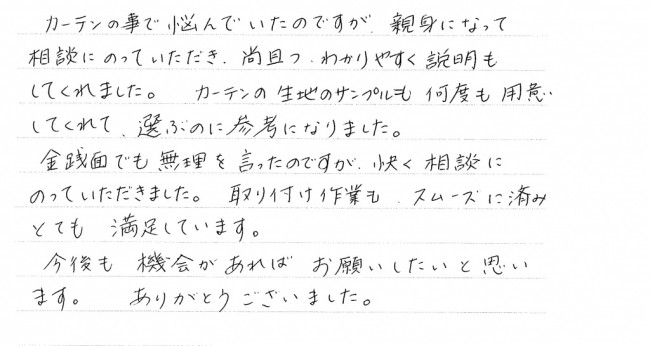 カーテンの事で悩んでいたのですが、親身になって
相談にのっていただき、尚且つ、わかりやすく説明も
してくれました。 カーテンの生地のサンプルも何度も用意
してくれて、選ぶのに参考になりました。
金銭面でも無理を言ったのですが、快く相談に
のっていただきました。 取り付け作業も、スムーズに済み
とても満足しています。
今後も機会があればお願いしたいと思い
ます。 ありがとうございました。